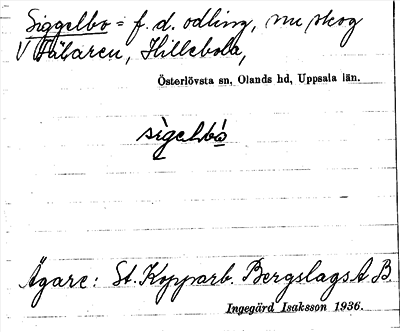 Siggelbo = f. d. odling, nu skog
V Täbaren, Hillebola,
Österlövsta sn, Olands hd, Uppsala län.
sìgəlbò
Ägare: St. Kopparb. Bergslags A. B.
Ingegärd Isaksson 1936.